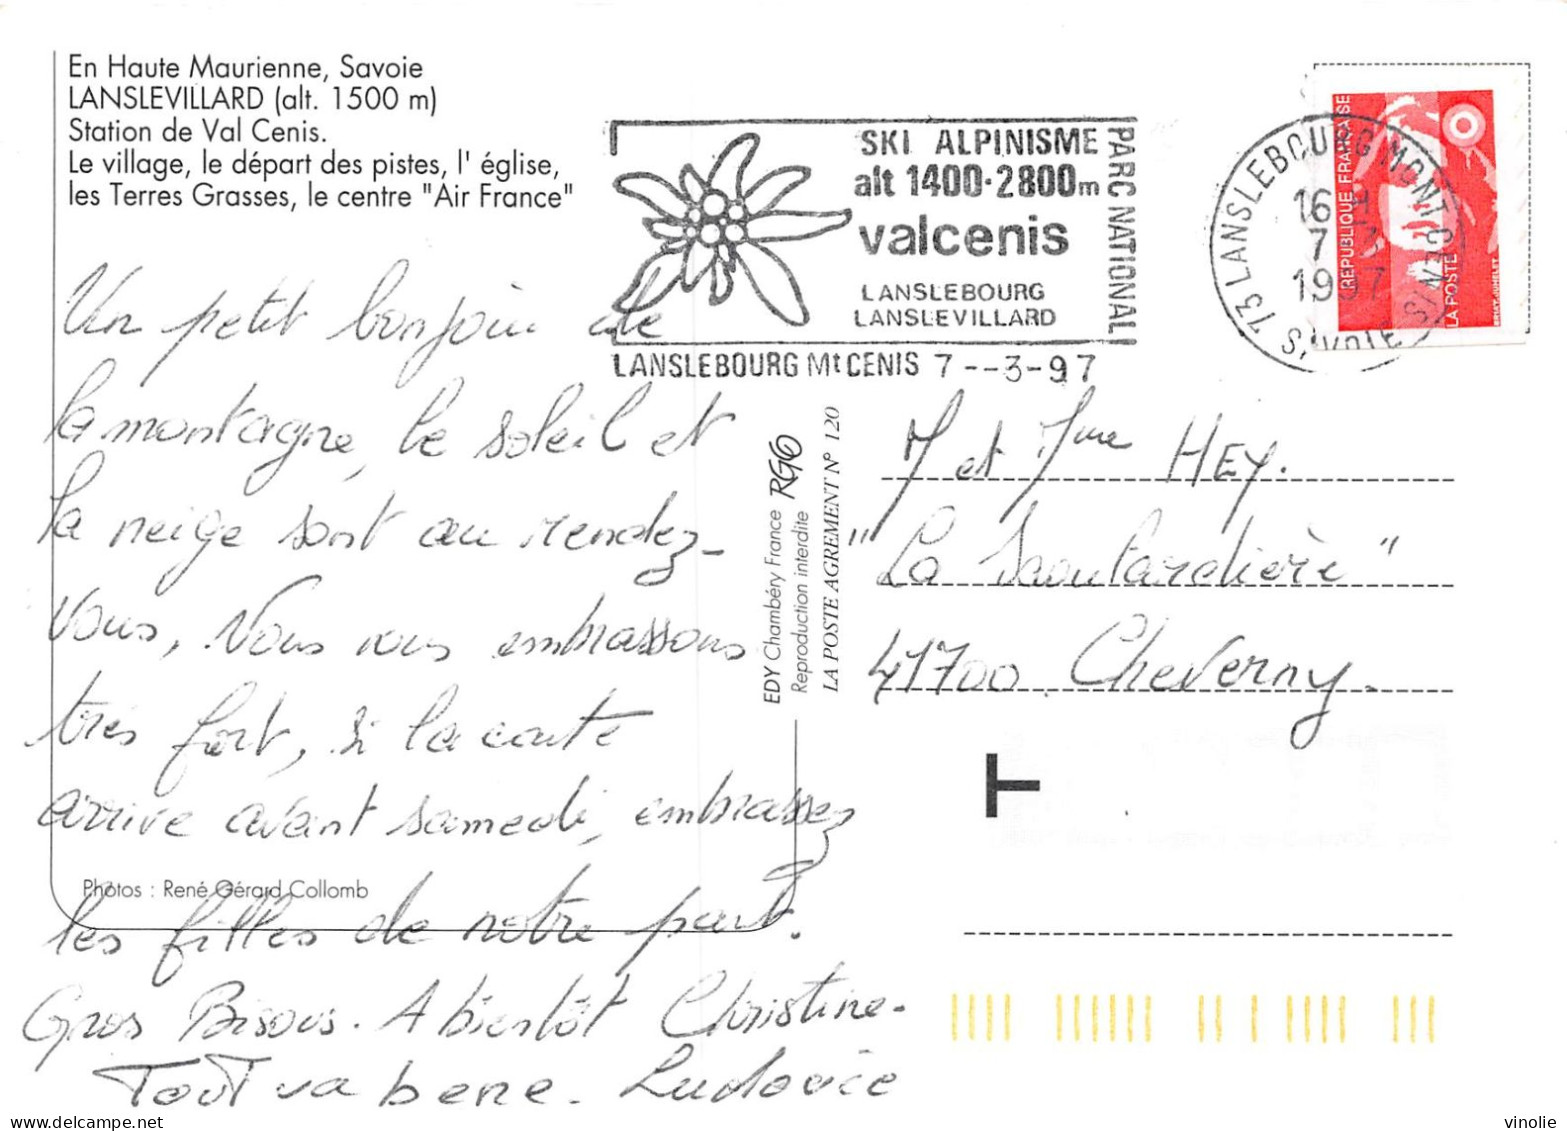 En Haute Maurienne, Savoie
LANSLEVILLARD (alt. 1500 m)
Station de Val Cenis.
Le village, le départ des pistes, l' église,
les Terres Grasses, le centre "Air France"
SKI ALPINISME
alt 1400-2800m
valcenis
LANSLEBOURG
LANSLEVILLARD
PARC NATIONAL
LANSLEBOURG Mt CENIS 7--3-97
73 LANSLEBOURG MONT CENIS
16 H
7-3
1997
SAVOIE
REPUBLIQUE FRANCAISE
LA POSTE
Un petit bonjour de
la montagne, le soleil et
la neige sont au rendez-
vous, Nous vous embrassons
très fort, si la carte
arrive avant samedi, embrassez
les filles de notre part.
Gros Bisous. A bientôt Christine.
Tout va bene. Ludovic
Photos : René Gérard Collomb
EDY Chambéry France RGC
Reproduction interdite
LA POSTE AGREMENT N° 120
M et Mme HEY.
"La Saoutardière"
41700 Cheverny.
T
www.delcampe.net
vinolie